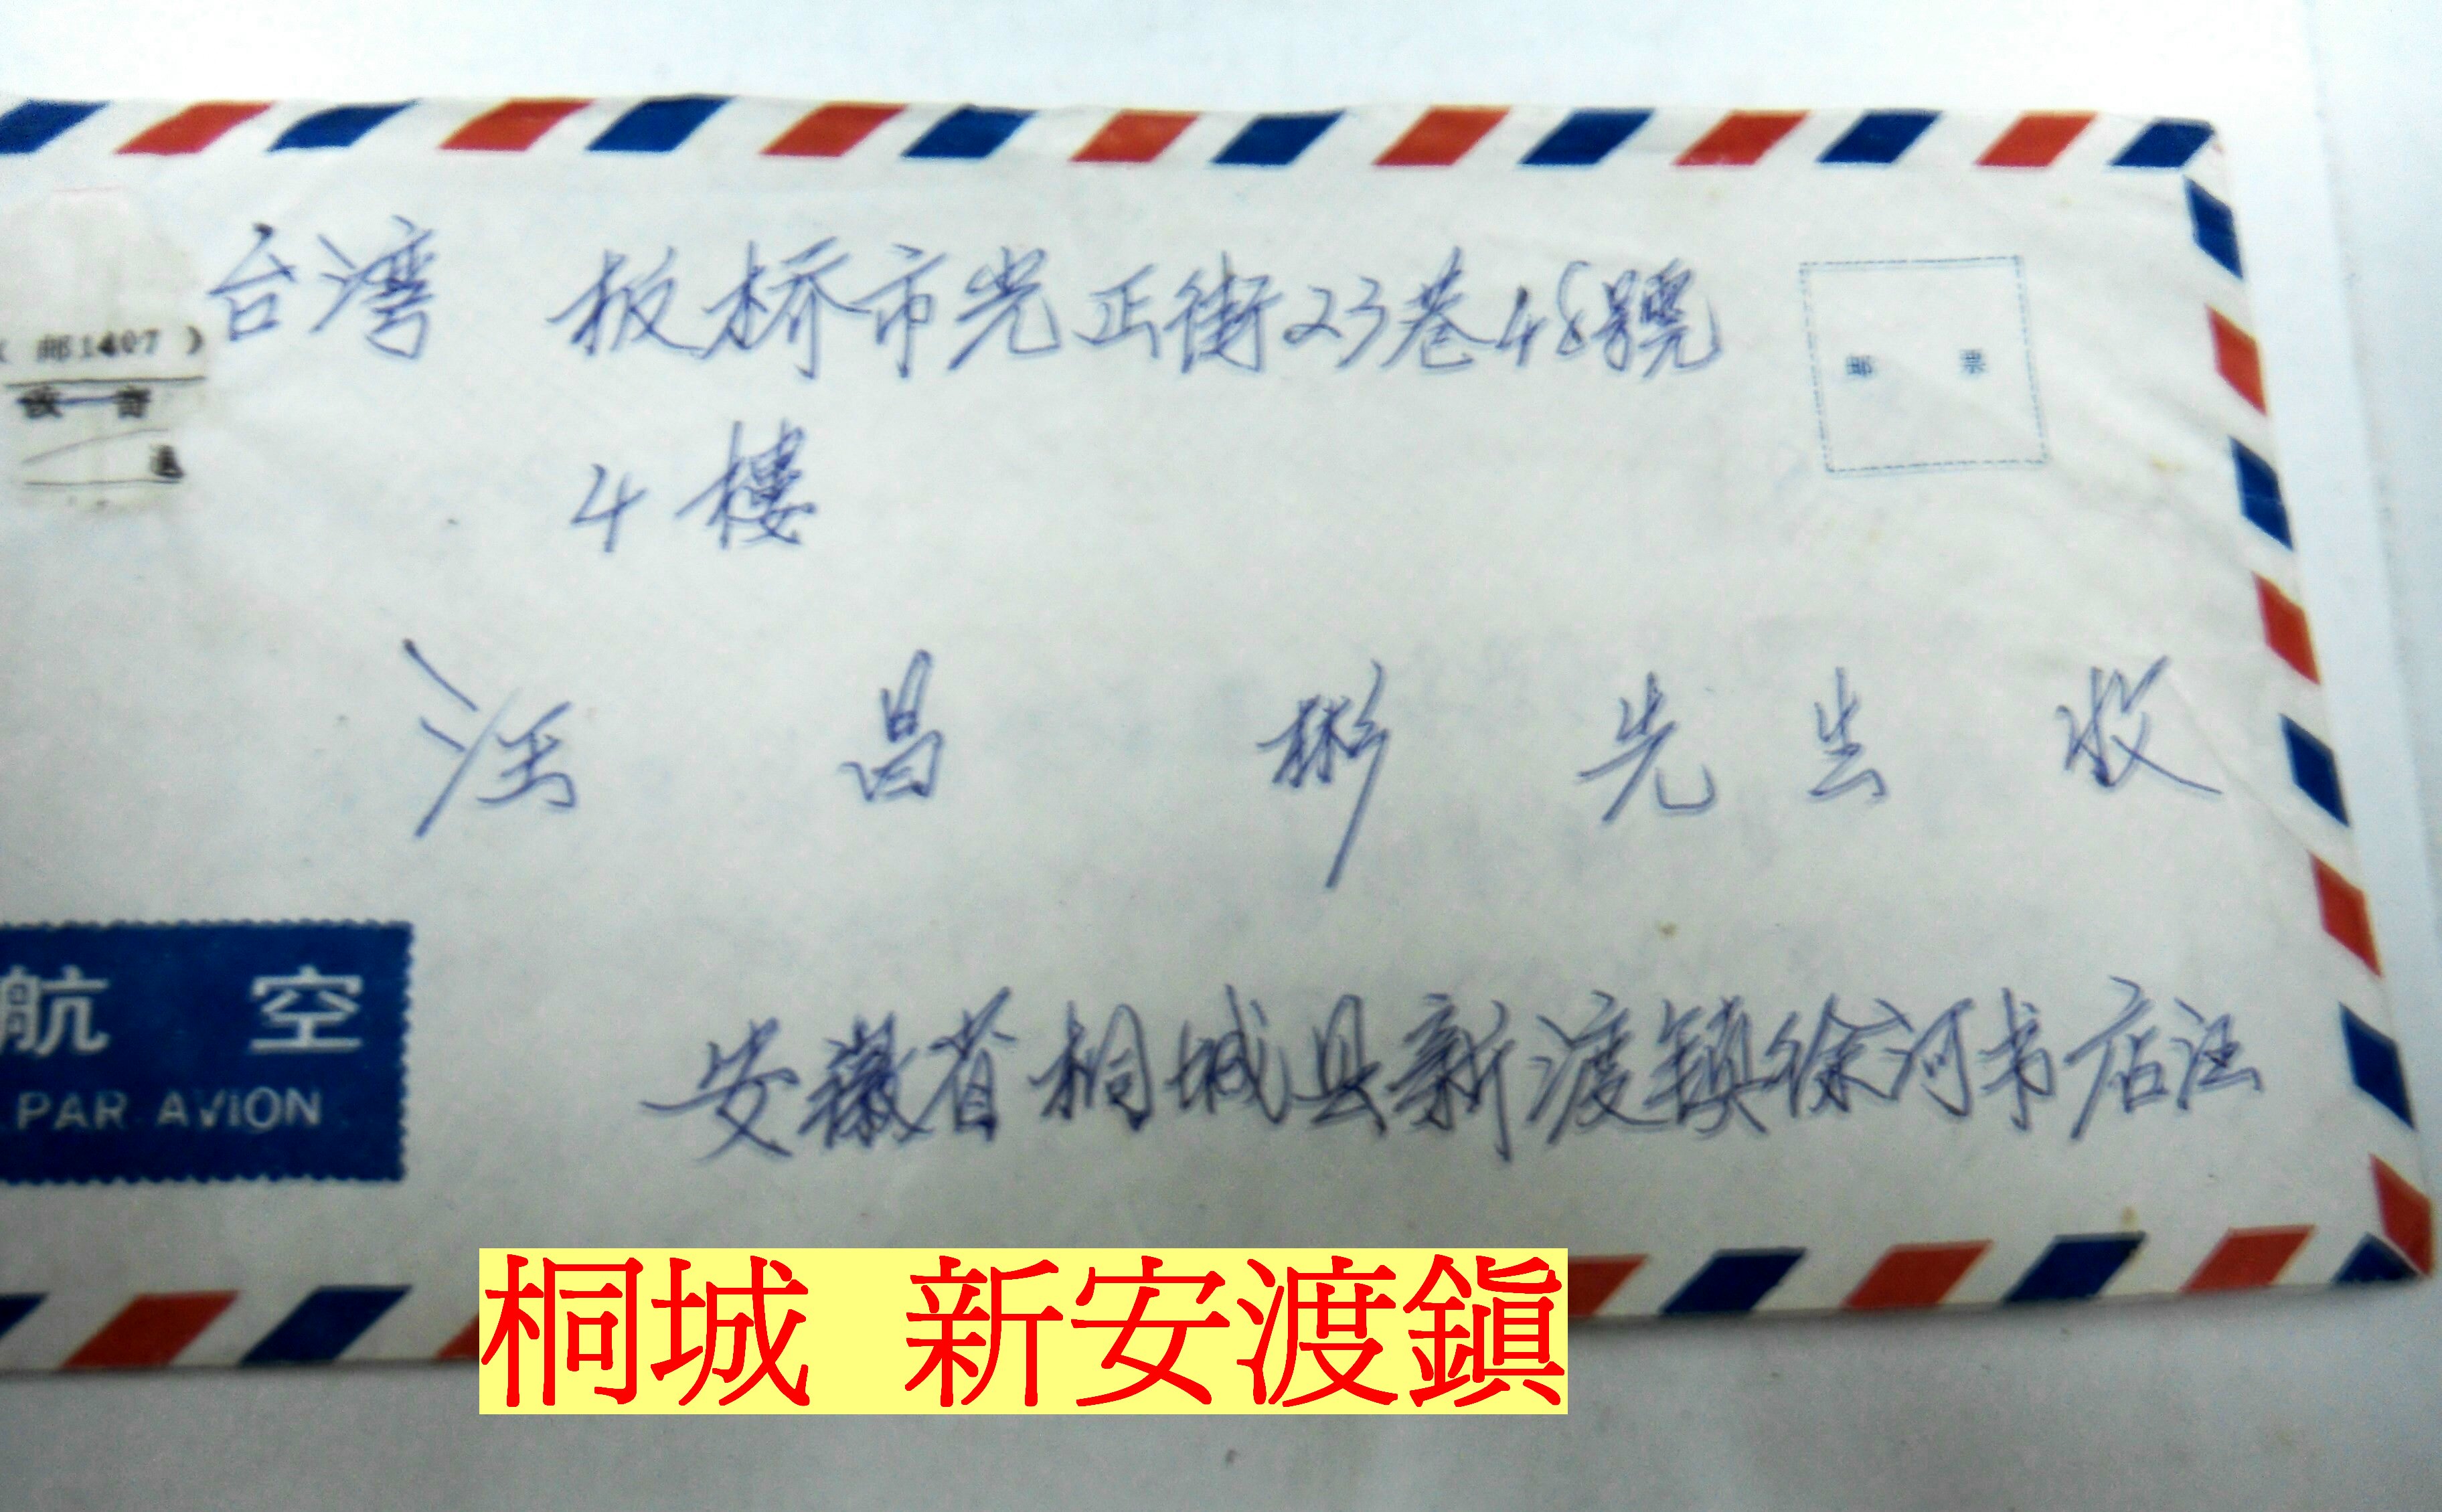 台湾 板桥市光正街23巷48號
4樓
(邮1407)
退
邮 票
汪昌彬先生收
航空
PAR AVION
安徽省桐城县新渡镇徐河书店汪
桐城 新安渡鎭